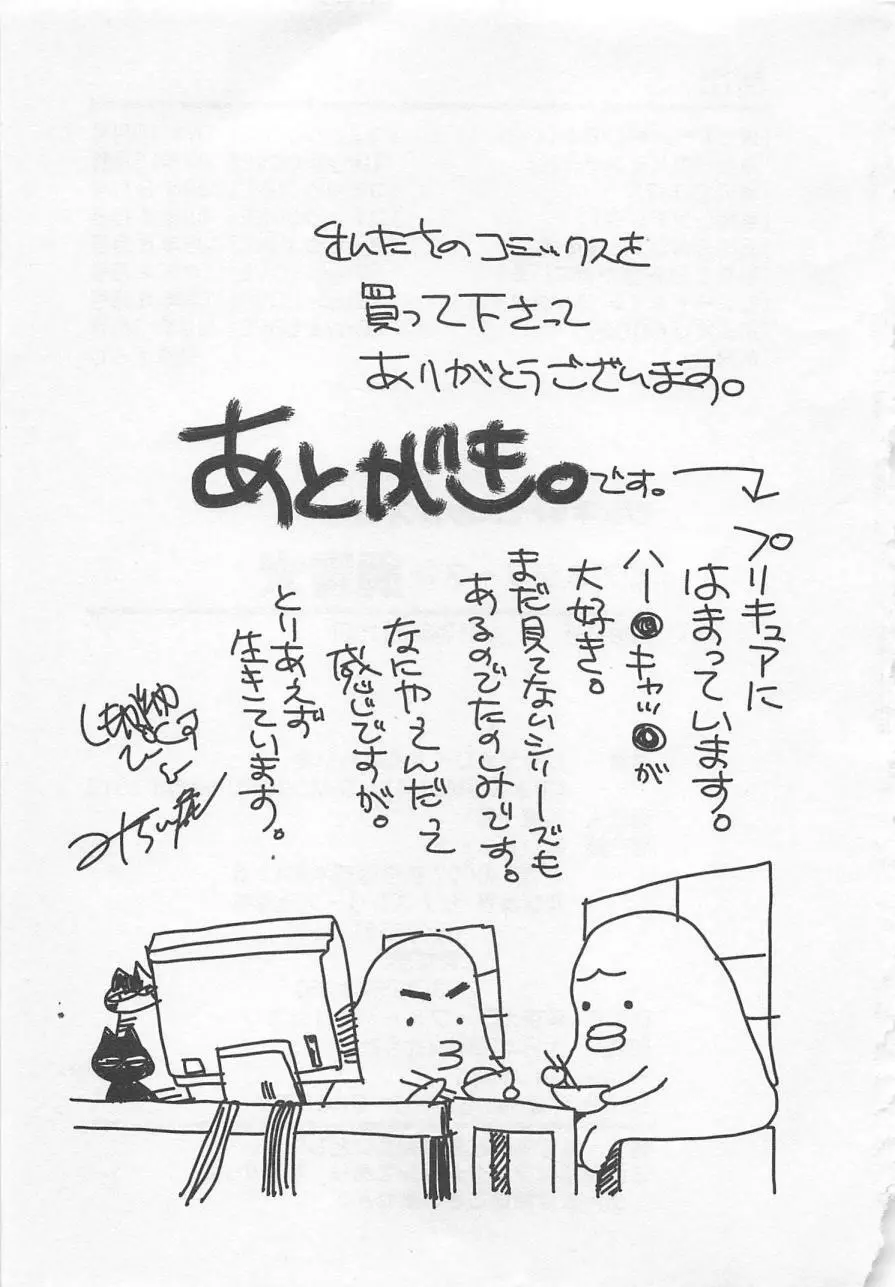 せんたきのコミックスを
買って下さって
ありがとうございます。
あとがき。です。
プリキュアに
はまっています。
ハー◎キャッ◎が
大好き。
まだ見てないシリーズも
あるのでたのしみです。
なにやってんだって
感じですが。
とりあえず
生きています。